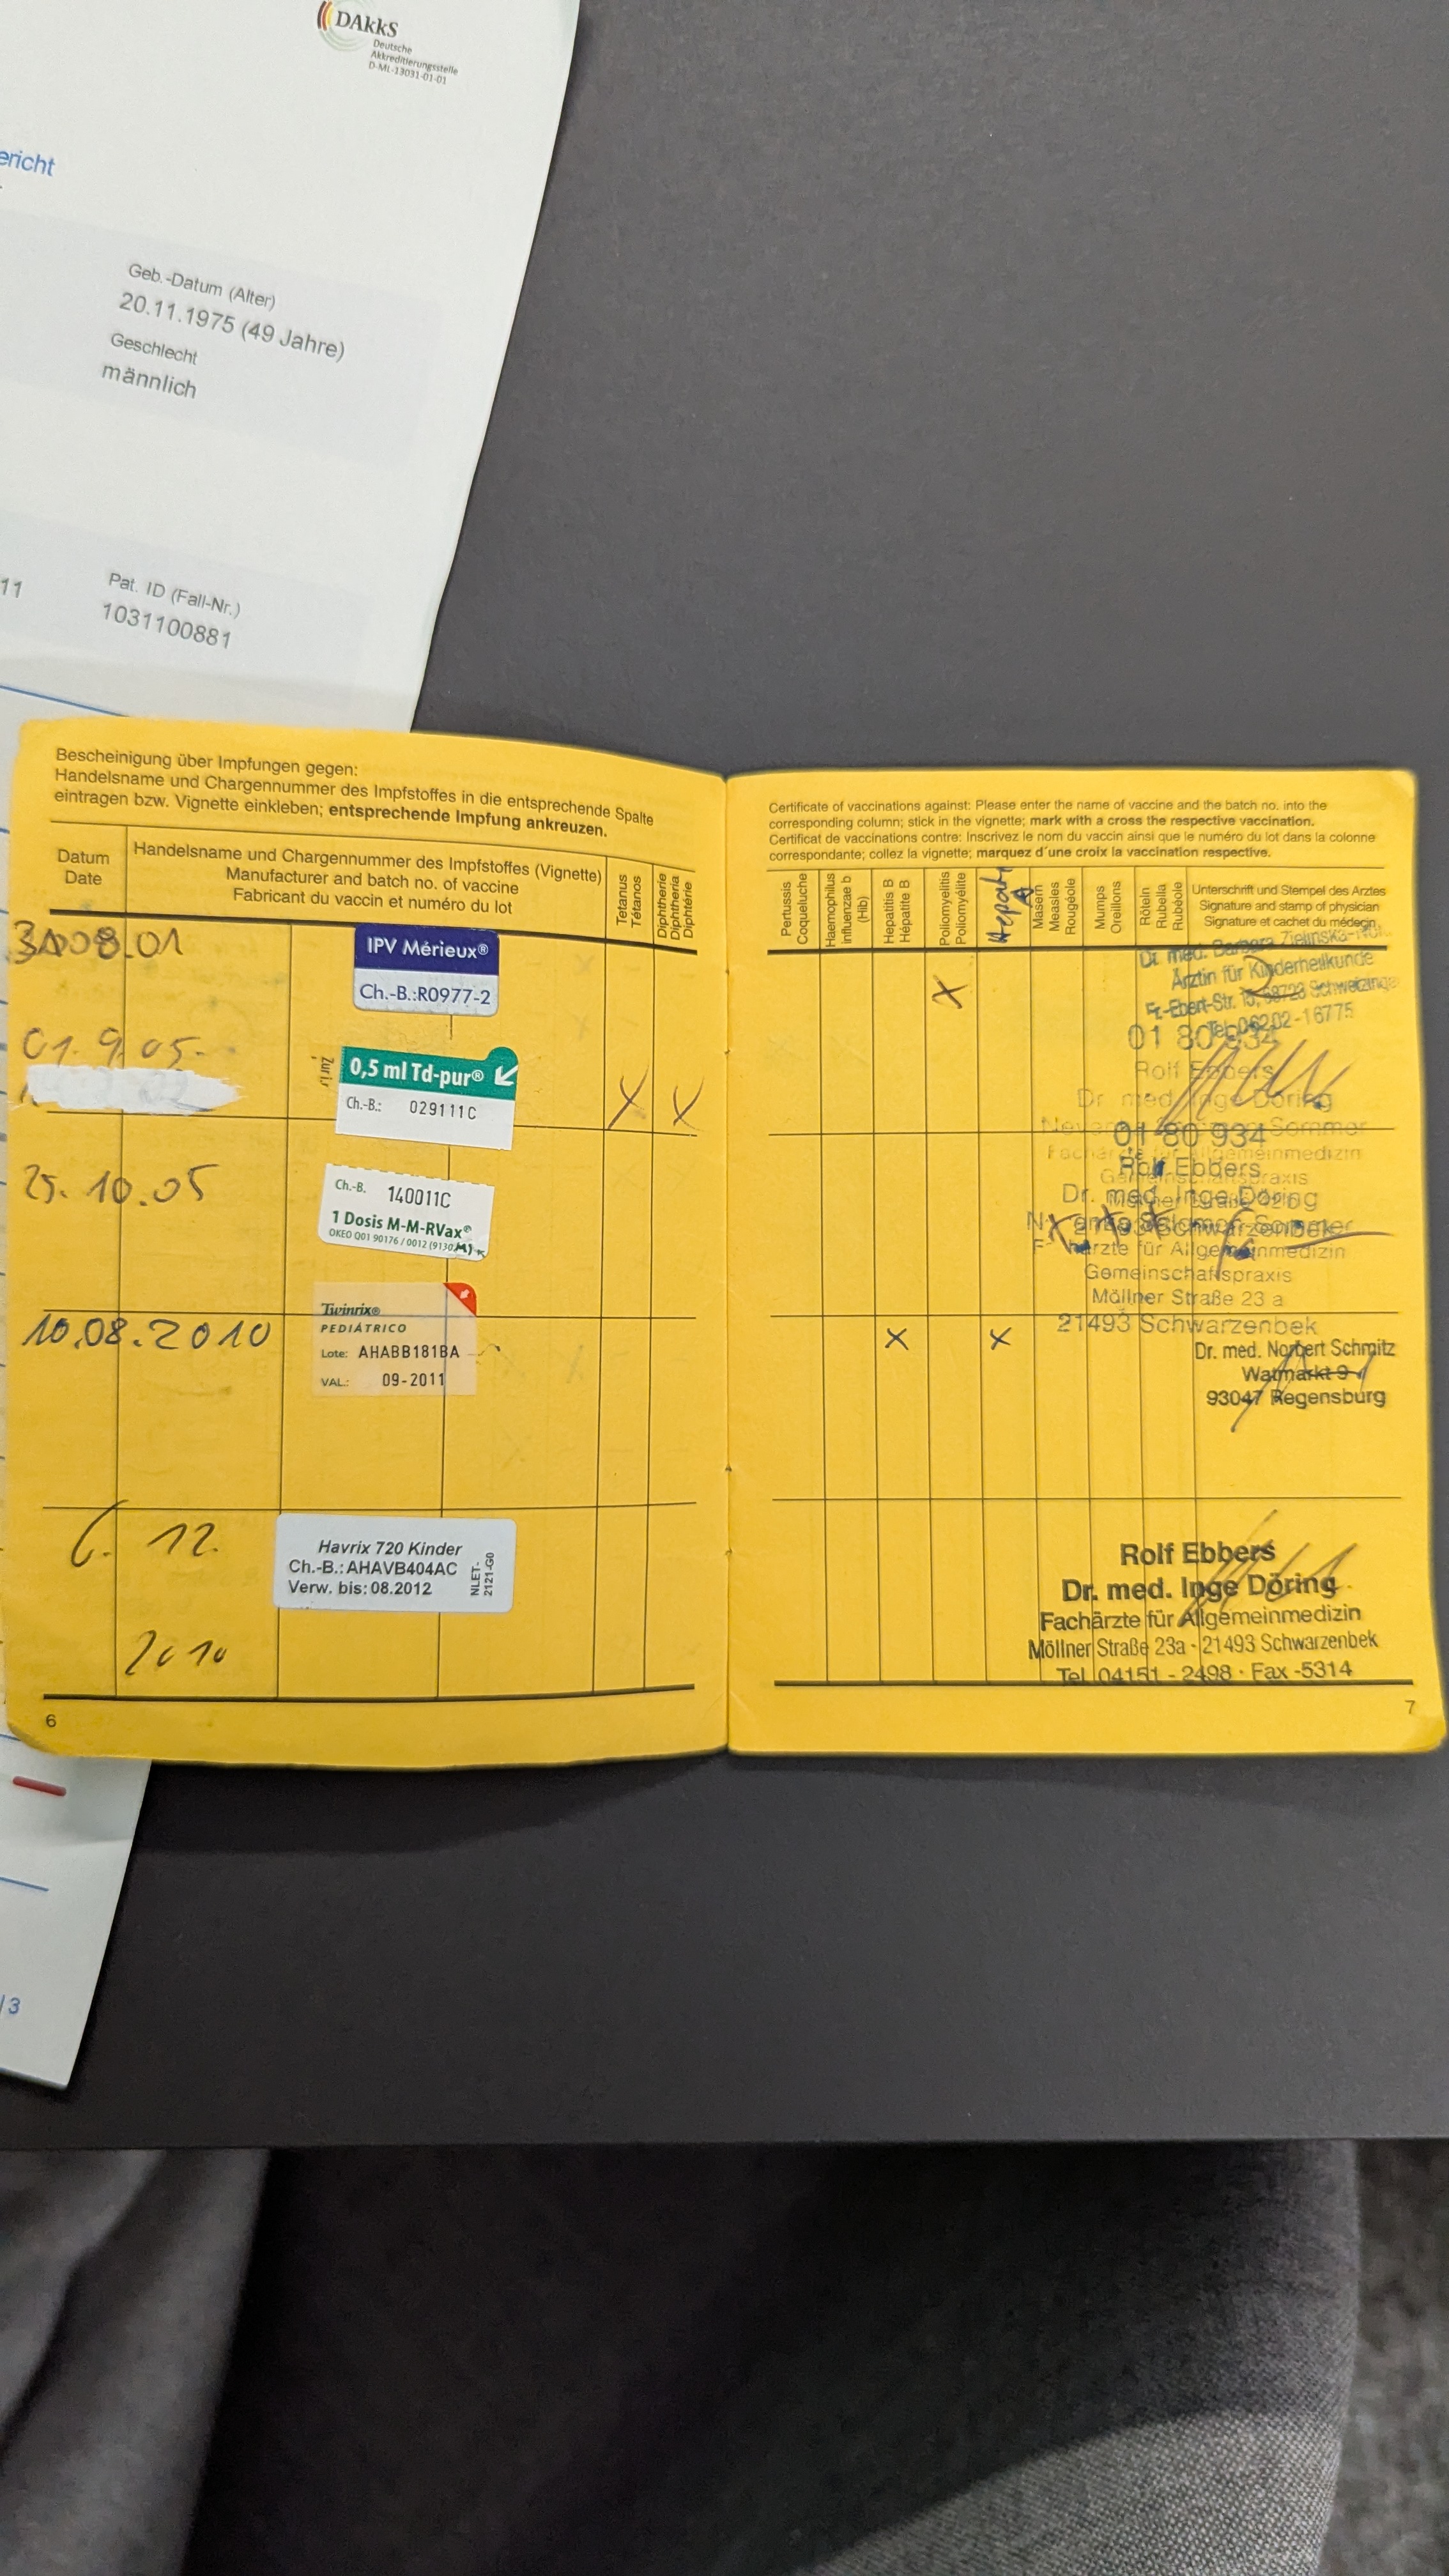 DAkkS
Deutsche
Akkreditierungsstelle
D-ML-13031-01-01
ericht
Geb.-Datum (Alter)
20.11.1975 (49 Jahre)
Geschlecht
männlich
11
Pat. ID (Fall-Nr.)
1031100881
Bescheinigung über Impfungen gegen:
Handelsname und Chargennummer des Impfstoffes in die entsprechende Spalte
eintragen bzw. Vignette einkleben; entsprechende Impfung ankreuzen.
Datum
Date
Handelsname und Chargennummer des Impfstoffes (Vignette)
Manufacturer and batch no. of vaccine
Fabricant du vaccin et numéro du lot
Tetanus
Tétanos
Diphtherie
Diphtheria
Diphtérie
08.01
IPV Mérieux®
Ch.-B.:R0977-2
01. 9. 05.
Zur i
0,5 ml Td-pur®
Ch.-B.: 029111C
X X
25. 10. 05
Ch.-B. 140011C
1 Dosis M-M-RVax®
OKEO Q01 90176 / 0012
10.08.2010
Twinrix®
PEDIÁTRICO
Lote: AHABB181BA
VAL.: 09-2011
6. 12.
2010
Havrix 720 Kinder
Ch.-B.: AHAVB404AC
Verw. bis: 08.2012
NLET-
2121-G0
6
Certificate of vaccinations against: Please enter the name of vaccine and the batch no. into the
corresponding column; stick in the vignette; mark with a cross the respective vaccination.
Certificat de vaccinations contre: Inscrivez le nom du vaccin ainsi que le numéro du lot dans la colonne
correspondante; collez la vignette; marquez d'une croix la vaccination respective.
Pertussis
Coqueluche
Haemophilus
influenzae b
(Hib)
Hepatitis B
Hépatite B
Poliomyelitis
Poliomyélite
A
Masern
Measles
Rougéole
Mumps
Oreillons
Röteln
Rubella
Rubéole
Unterschrift und Stempel des Arztes
Signature and stamp of physician
Signature et cachet du médecin
Dr. med. Barbara Zielinska-
Ärztin für Kinderheilkunde
Fr.-Ebert-Str.
Tel. 06202-16775
X
01 80 934
Rolf Ebbers
Dr. med. Inge Döring
01 80 934
Rolf Ebbers
Dr. med. Inge Döring
Fachärzte für Allgemeinmedizin
Gemeinschaftspraxis
Möllner Straße 23 a
21493 Schwarzenbek
X X
Dr. med. Norbert Schmitz
Watmarkt 9
93047 Regensburg
Rolf Ebbers
Dr. med. Inge Döring
Fachärzte für Allgemeinmedizin
Möllner Straße 23a · 21493 Schwarzenbek
Tel. 04151 - 2498 · Fax -5314
7
/3